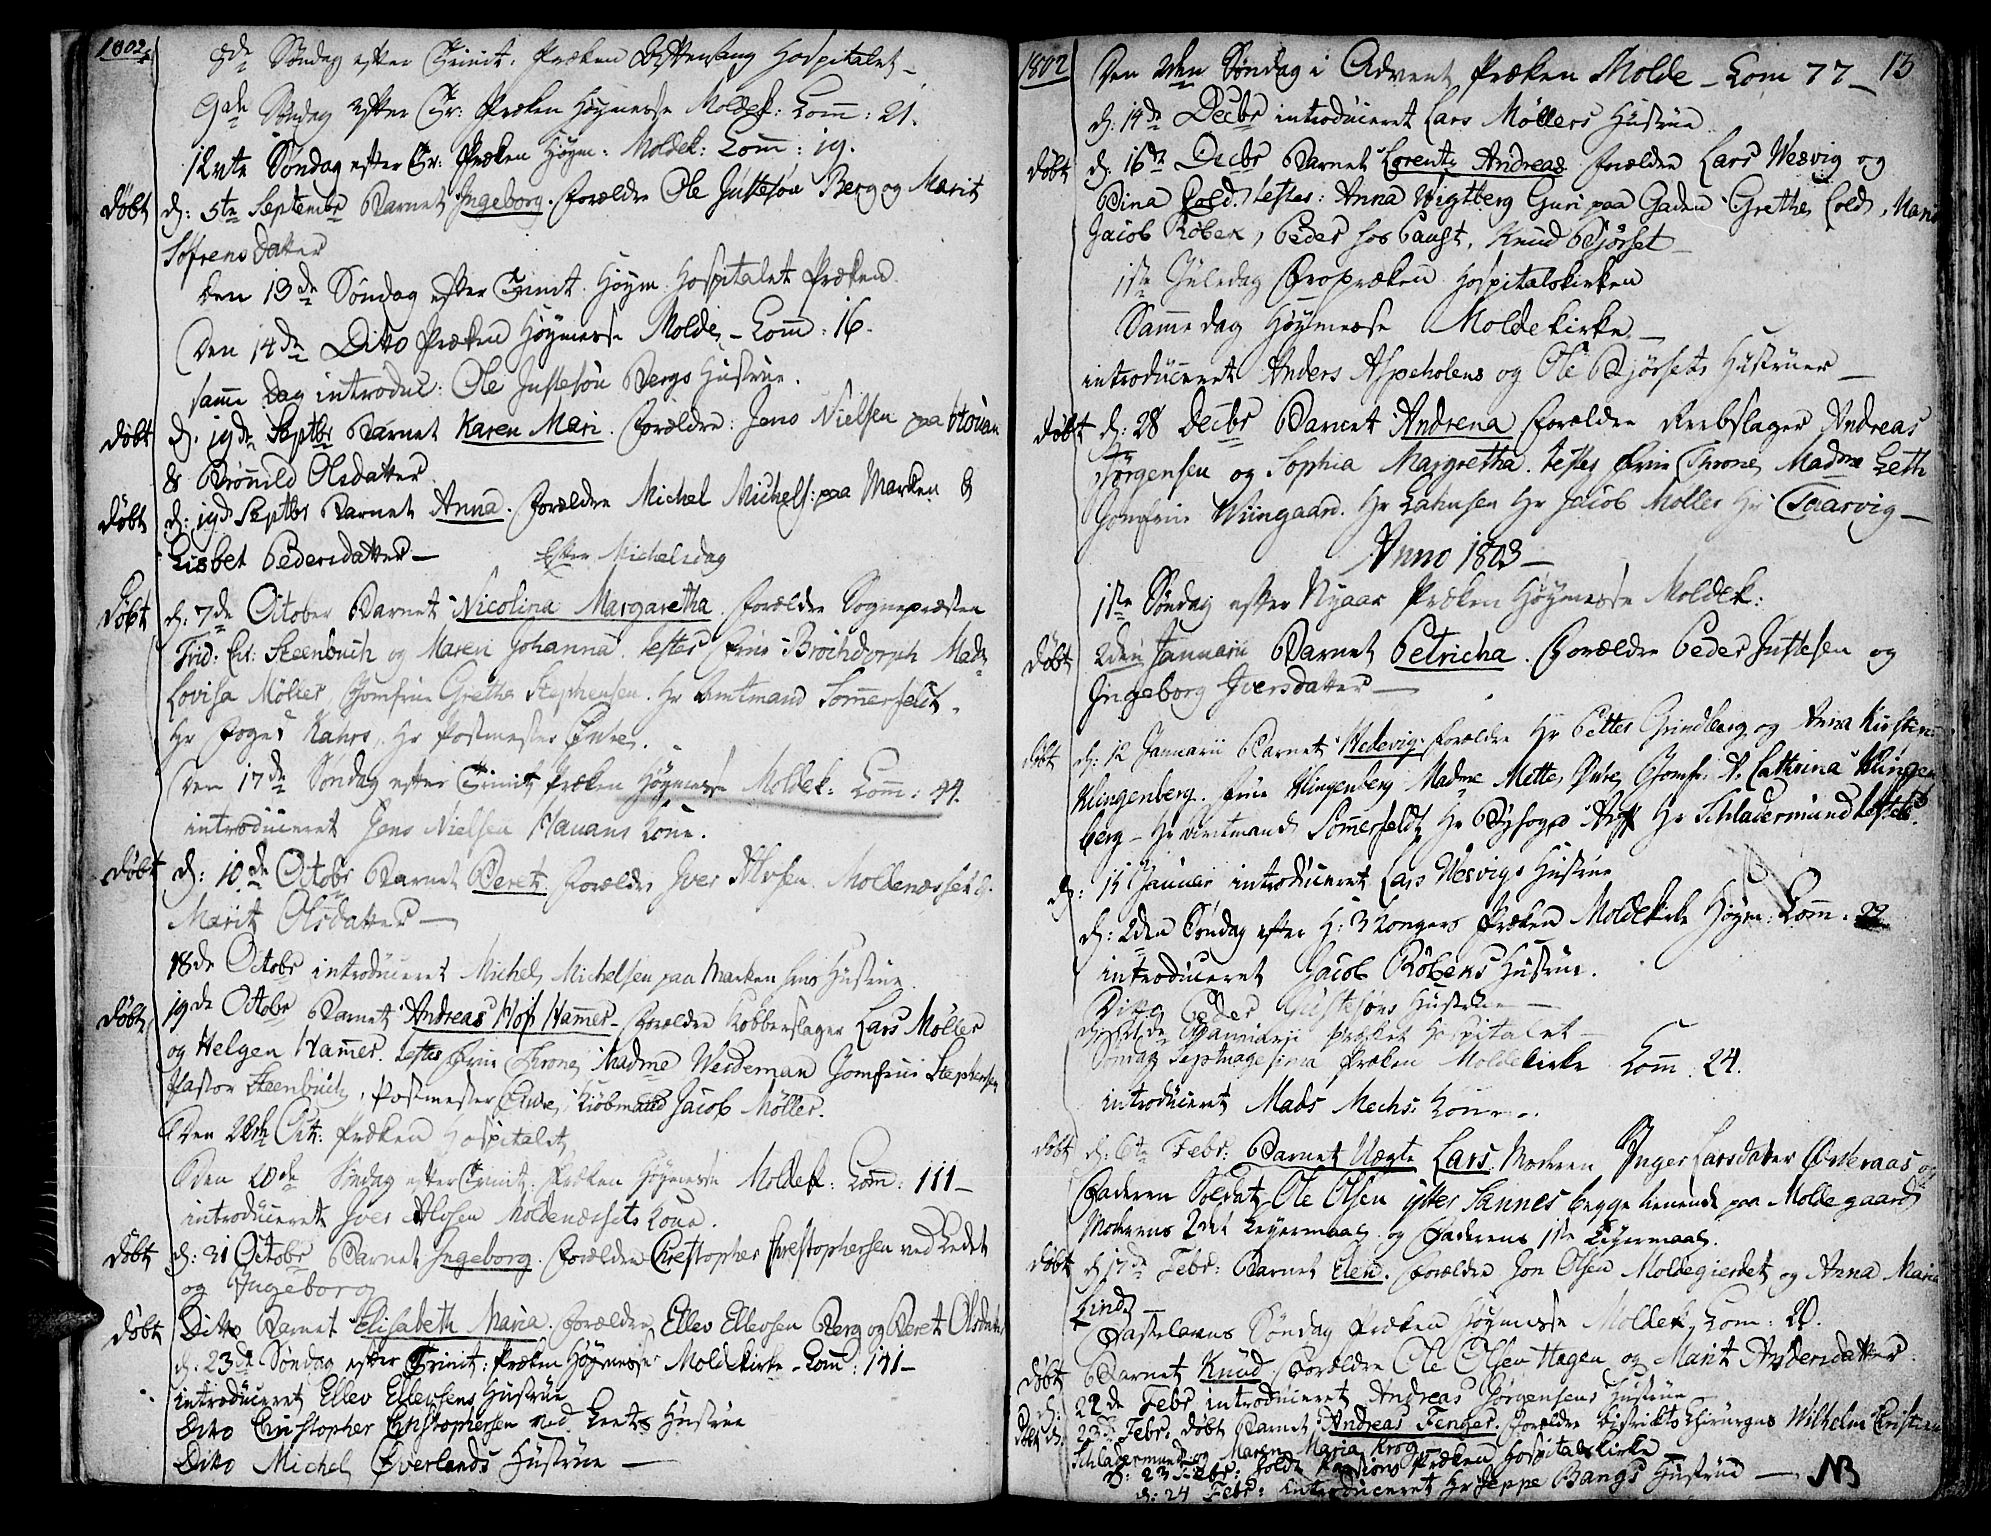 1802.
8de Søndag efter Trinit: Præken Hospitalet
9de Søndag efter Tr: Præken Høymesse Moldek: Com: 21.
12vte Søndag efter Tr: Præken Høym: Moldek: Com: 19.
døbt d: 5te Septembr Barnet Ingeborg. Forældre Ole Justesøn Berg og Marit
Søfrensdatter
Den 13de Søndag efter Trinit. Høym. Hospitalet Præken
Den 14de Dito Præken Høymesse Molde - Com: 16.
samme Dag introdue: Ole Justesøn Bergs Hustrue.
døbt d. 19de Septbr Barnet Karen Mari. Forældre: Jens Nielsen paa
& Brønild Olsdatter
døbt d: 19d Septbr Barnet Anna. Forældre Michel Michels: paa Marken &
Lisbet Pedersdatter —
Efter Michelsdag
døbt d: 7de October Barnet Nicolina Margaretha. Forældre Sognepræsten
Frid: Chr: Steenbuch og Maren Johanna. testes Frue Brochdorph Made
Lovisa Møller, Jomfrue Grethe Stephensen. Hr Amtmand Sommerfeldt.
Hr Foged Kahrs, Hr Postmester Owre.
Den 17de Søndag efter Trinit Præken Høymesse Moldek: Com: 44.
introduceret Jens Nielsen Havans Kone.
døbt d: 10de Octobr Barnet Beret Forældre Iver Alvsen Moldenæsset &
Marit Olsdatter —
18de Octobr introduceret Michel Michelsen paa Marken hans Hustrue
døbt 19de Octobr Barnet Andreas Hof Hammer - Forældre Kobberslager Lars Møller
og Helgen Hammer. testes Frue Throne, Madme Weideman Jomfrue Stephensen
Pastor Steenbuch, Postmester Owre, Kiøbmand Jacob Møller.
Den Oct: Præken Hospitalet
Den 20de Søndag efter Trinit. Præken Høymesse Moldek: Com: 111 —
introduceret Iver Alvsen Moldenæssets Kone.
døbt d: 31 Octobr Barnet Ingeborg. Forældre Christopher Christophersen ved Ledet
og Ingeborg
døbt Ditto Barnet Elisabeth Maria. Forældre Ellev Ellevsen Berg og Beret Olsdatter
d: 23de Søndag efter Trinit: Præken Høymesse Moldekirke - Com: 141 —
introduceret Ellev Ellevsens Hustrue
Dito Christopher Christophersen ved Hustrue
Dito Michel Øverlands Hustrue —

1802
13
Den 2den Søndag i Advent Præken Molde - Com 77 —
d: 14de Decbr introduceret Lars Møllers Hustrue
døbt d. 16de Decbr Barnet Lorentz Andreas forældre Lars Wesvig og
Bina Cold. testes: Anna Wigtberg Guri paa Gaden Grethe Cold, Mari
Jacob Röbek, Peder hos Paust, Knud Biørset —
1ste Juledag Froprækens Hospitalskirken
Samme dag Høymesse Moldekirke —
introduceret Anders Aspeholens og Ole Biørsets Hustruer —
døbt d: 28 Decbr Barnet Andrena Forældre Rebslager Andreas
Jörgensen og Sophia Margretha. testes Frue Throne Madme Leth
Jomfrue Wiingaard. Hr Lahnsen Hr Jacob Møller Hr Taarvig —
Anno 1803 —
1ste Søndag efter Nyaar Præken Høymesse Moldek:
døbt 2den Januarii Barnet Petricha. Forældre Peder Justesen og
Ingeborg Iversdatter —
døbt d: 12 Januarii Barnet Hedevig: Forældre Hr Petter Grindberg og Anna Kirsten
Klingenberg. Frue Klingenberg Madme Mette Owre, Jomfr: A. Cathrina Klingen
berg - Hr Amtmand Sommerfeldt Hr Byfoged Hr Schladermund testes.
d: 15 Januar introduceret Lars Wesvigs Hustrue
d: 2den Søndag efter H: 3 Kongers Præken Moldekirke Høym: Com: 22
introduceret Jacob Röbeks Hustrue.
Ditto Peder Justesøns Hustrue —
Januarii præket Hospitalet
Søndag Septuagesima Præken Moldekirke Com. 24.
introduceret Mads Mechs: Kone.
døbt d: 6te Febr: Barnet Uægte Lars. Moderen Inger Larsdatter Østeraas og
Faderen Soldat Ole Olsen ytter Sannes begge tienende paa Moldegaard
Moderens 2det Leyermaal og Faderens 1ste Leyermaal.
døbt d 17de Febr: Barnet Elen. Forældre Jon Olsen Moldegierdet og Anna Maria
Lind —
Fastelavns Søndag Præken Høymesse Moldek. Com: 20.
døbt Barnet Knud Forældre Ole Olsen Hagen og Marit Andersdatter.
d: 22de Febr introduceret Andreas Jörgensens Hustrue —
døbt d: 23de Febr. døbt Barnet Andreas Fenger. Forældre Districts Chirurgus Wilhelm Christian
Schladermund og Maren Maria Krog
d: 23 Febr: holdt Passions Præken Hospitalskirke —
d: 24 Febr: introduceret Hr Jeppe Bangs Hustrue — NB